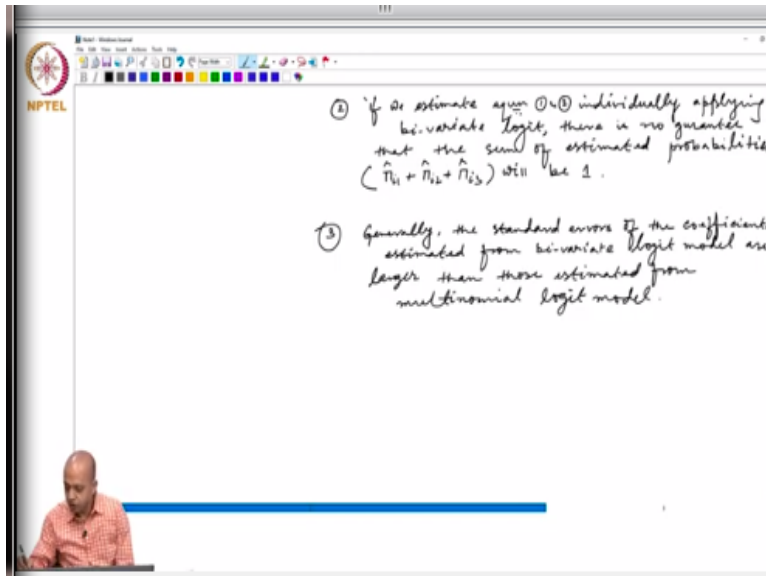 NPTEL
② if we estimate eqn ① & ② individually applying
bi-variate logit, there is no gurantee
that the sum of estimated probabilitie
( π̂i1 + π̂i2 + π̂i3 ) will be 1 .
③ Generally, the standard errors of the coefficient
estimated from bi-variate logit model are
larger than those estimated from
multinomial logit model.